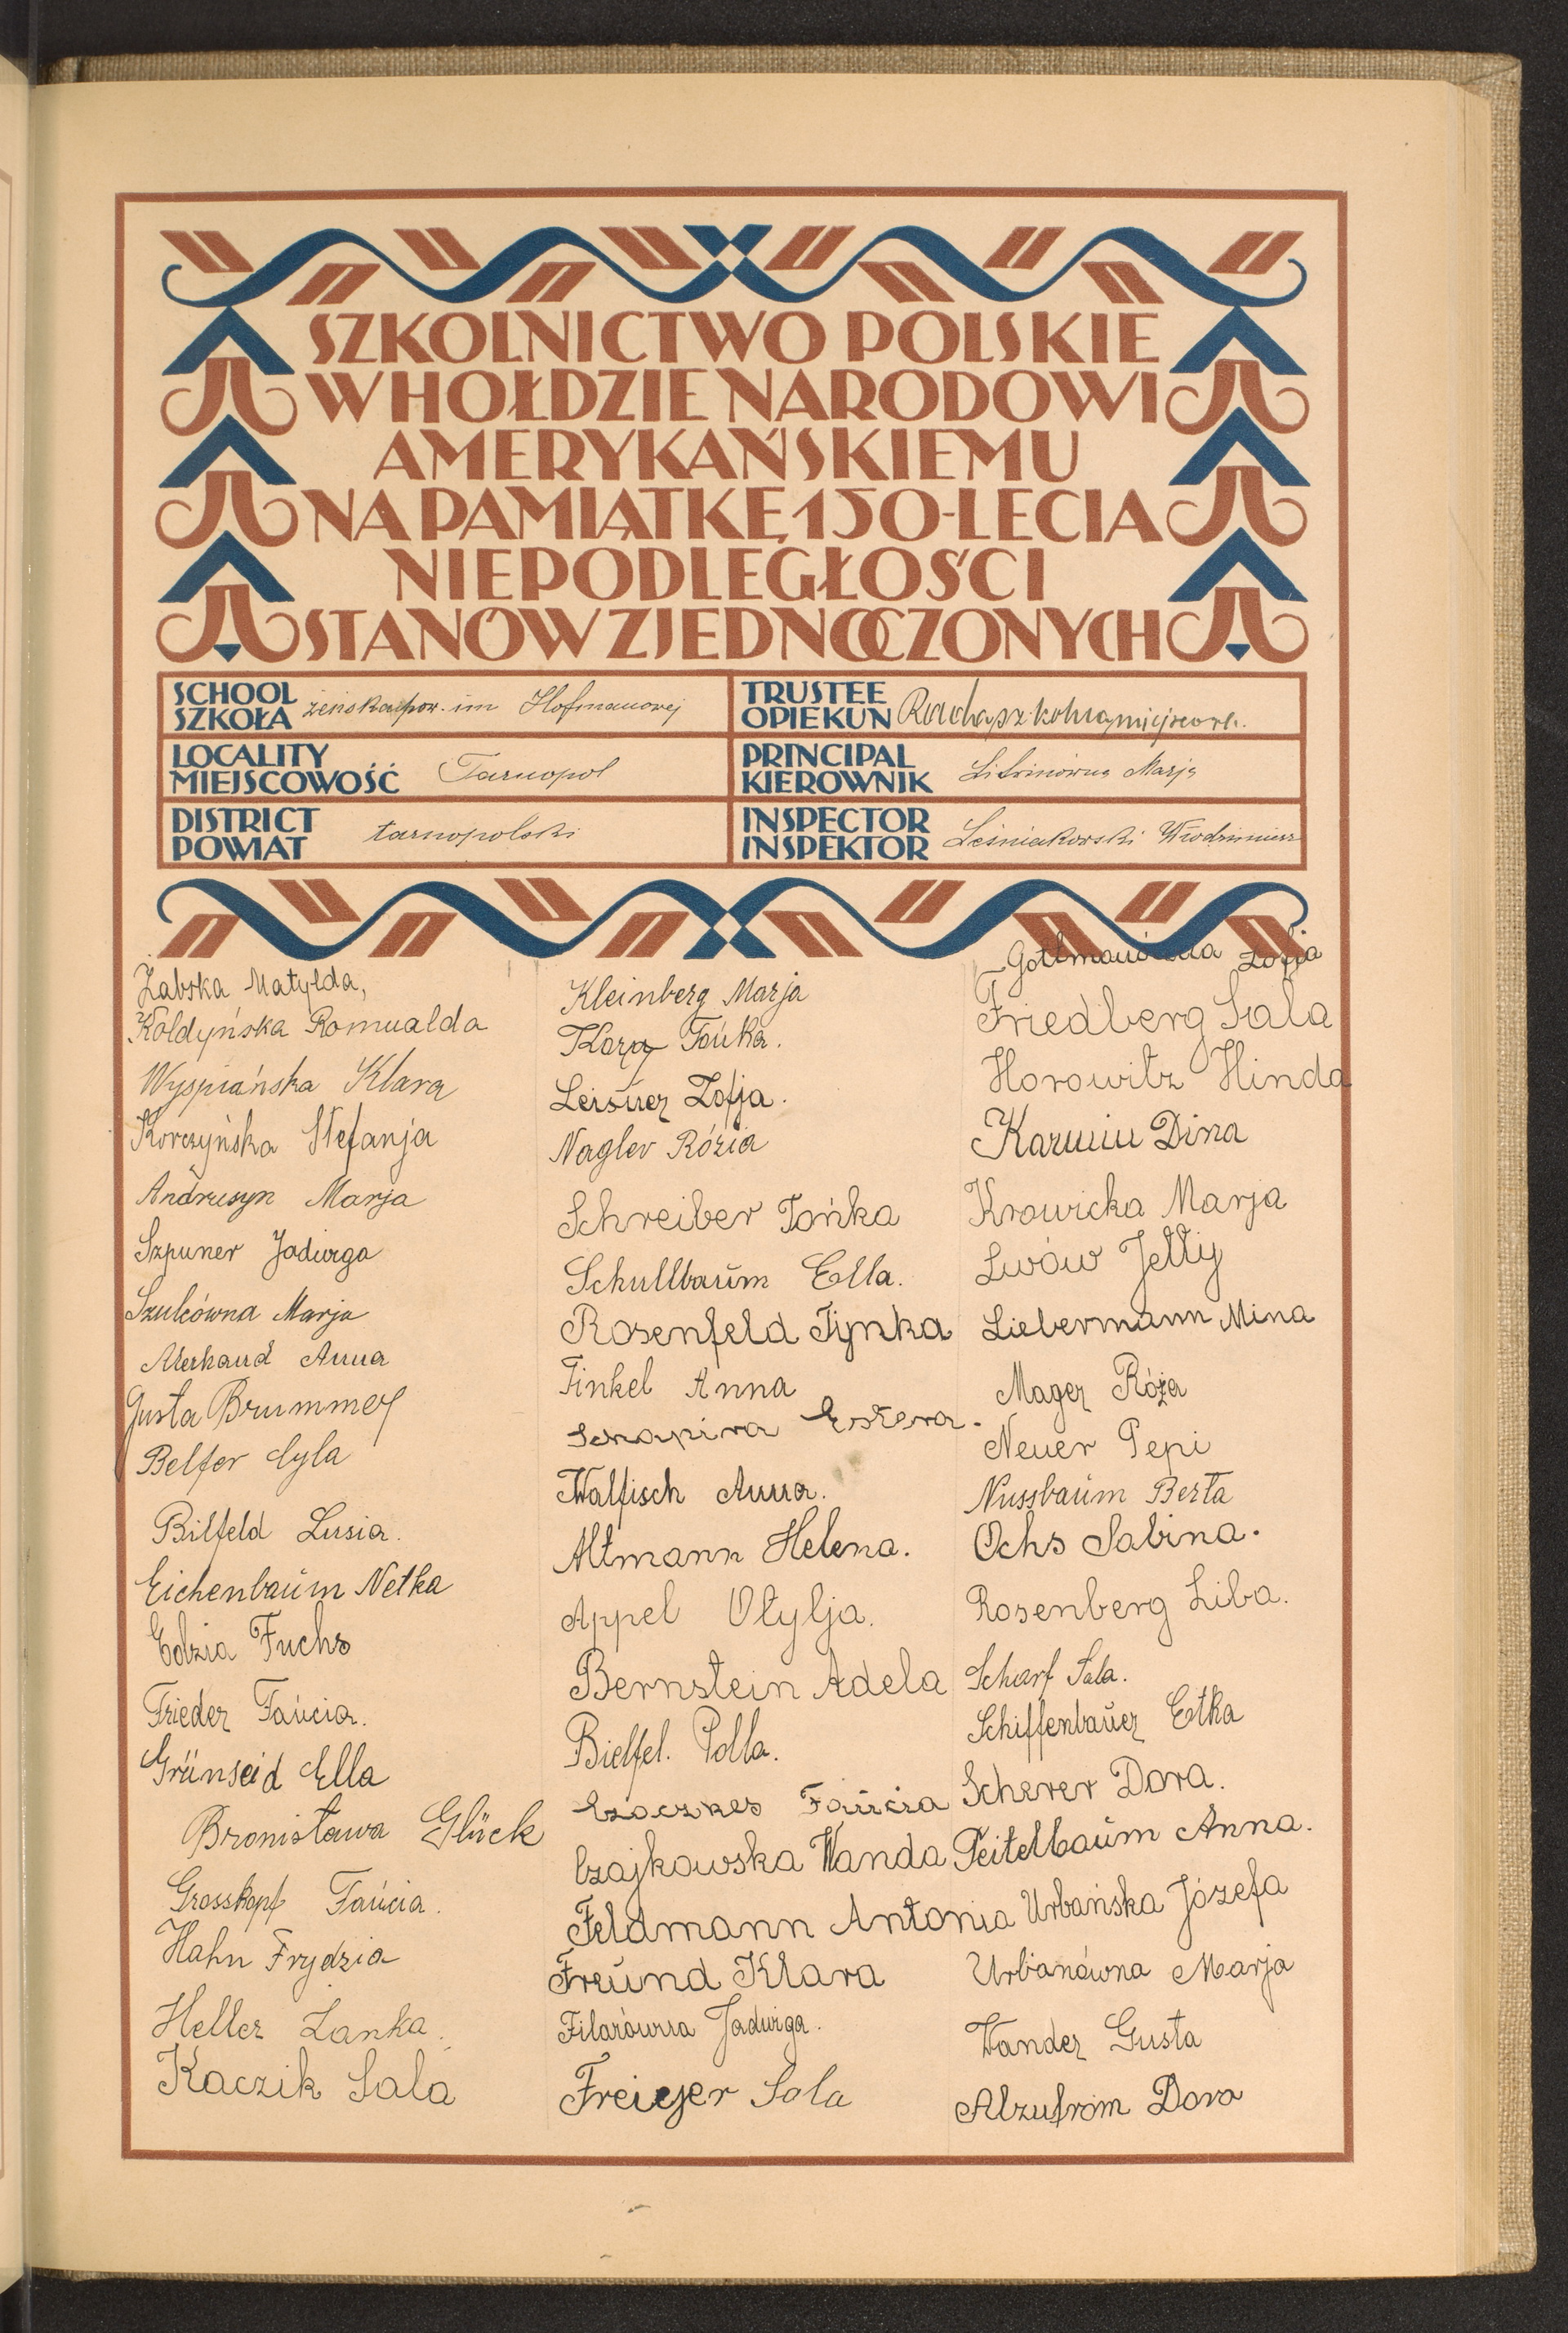 SZKOLNICTWO POLSKIE
W HOŁDZIE NARODOWI
AMERYKAŃSKIEMU
NA PAMIĄTKĘ 150-LECIA
NIEPODLEGŁOŚCI
STANÓW ZJEDNOCZONYCH
SCHOOL
SZKOŁA żeńska pow. im Hofmanowej
TRUSTEE
OPIEKUN Rada szkolna miejscowa
LOCALITY
MIEJSCOWOŚĆ Tarnopol
PRINCIPAL
KIEROWNIK Litwinówna Marja
DISTRICT
POWIAT tarnopolski
INSPECTOR
INSPEKTOR Leśniakowski Włodzimierz
Żabska Matylda,
Kołdyńska Romualda
Wyspiańska Klara
Korczyńska Stefanja
Andrusyn Marja
Szpuner Jadwiga
Szulcówna Marja
Anna
Gusta Brummer
Belfer Cyla
Bilfeld Lusia.
Eichenbaum Netka
Edzia Fuchs
Frieder Fańcia.
Grünseid Ella
Bronisława Glück
Grosskopf Fańcia.
Hahn Frydzia
Heller Lanka.
Kaczik Sala
Kleinberg Marja
Tońka.
Leisner Zofja.
Nagler Rózia
Schreiber Tońka
Schullbaum Ella.
Rosenfeld Tynka
Finkel Anna
Schapira Estera.
Walfisch Anna.
Altmann Helena.
Appel Otylja.
Bernstein Adela
Bielfel. Polla.
Czaczkes Fańcia
Czajkowska Wanda
Feldmann Antonia
Freund Klara
Filarówna Jadwiga.
Freiger Sala
Gottmanówna Zofja
Friedberg Sala
Horowitz Hinda
Karmin Dina
Krowicka Marja
Lwów Jetty
Liebermann Mina
Mager Róża
Neuer Pepi
Nussbaum Berta
Ochs Sabina.
Rosenberg Liba.
Scharf Sala.
Schiffenbauer Etka
Scherer Dora.
Teitelbaum Anna.
Urbańska Józefa
Urbanówna Marja
Wander Gusta
Alzufrom Dora